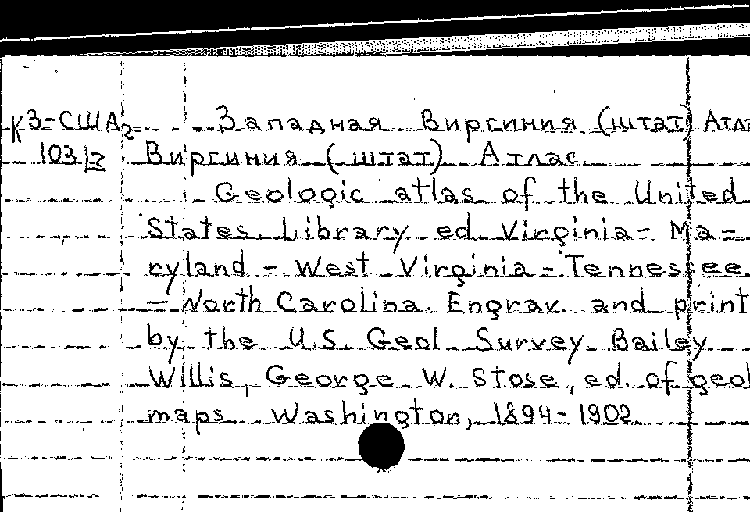 К3-США2 Западная Виргиния (штат) Атл
103/Z Виргиния (штат) Атлас
Geologic atlas of the United
States. Library ed. Virginia- Ma-
ryland - West Virginia - Tennessee
- North Carolina. Engrav. and print
by the U.S. Geol. Survey. Bailey
Willis, George W. Stose, ed. of geol
maps. Washington, 1894-1902